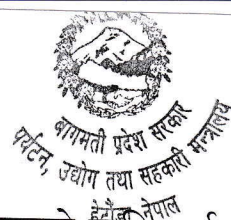 बागमती प्रदेश सरकार
पर्यटन, उद्योग तथा सहकारी मन्त्रालय
हेटौंडा नेपाल